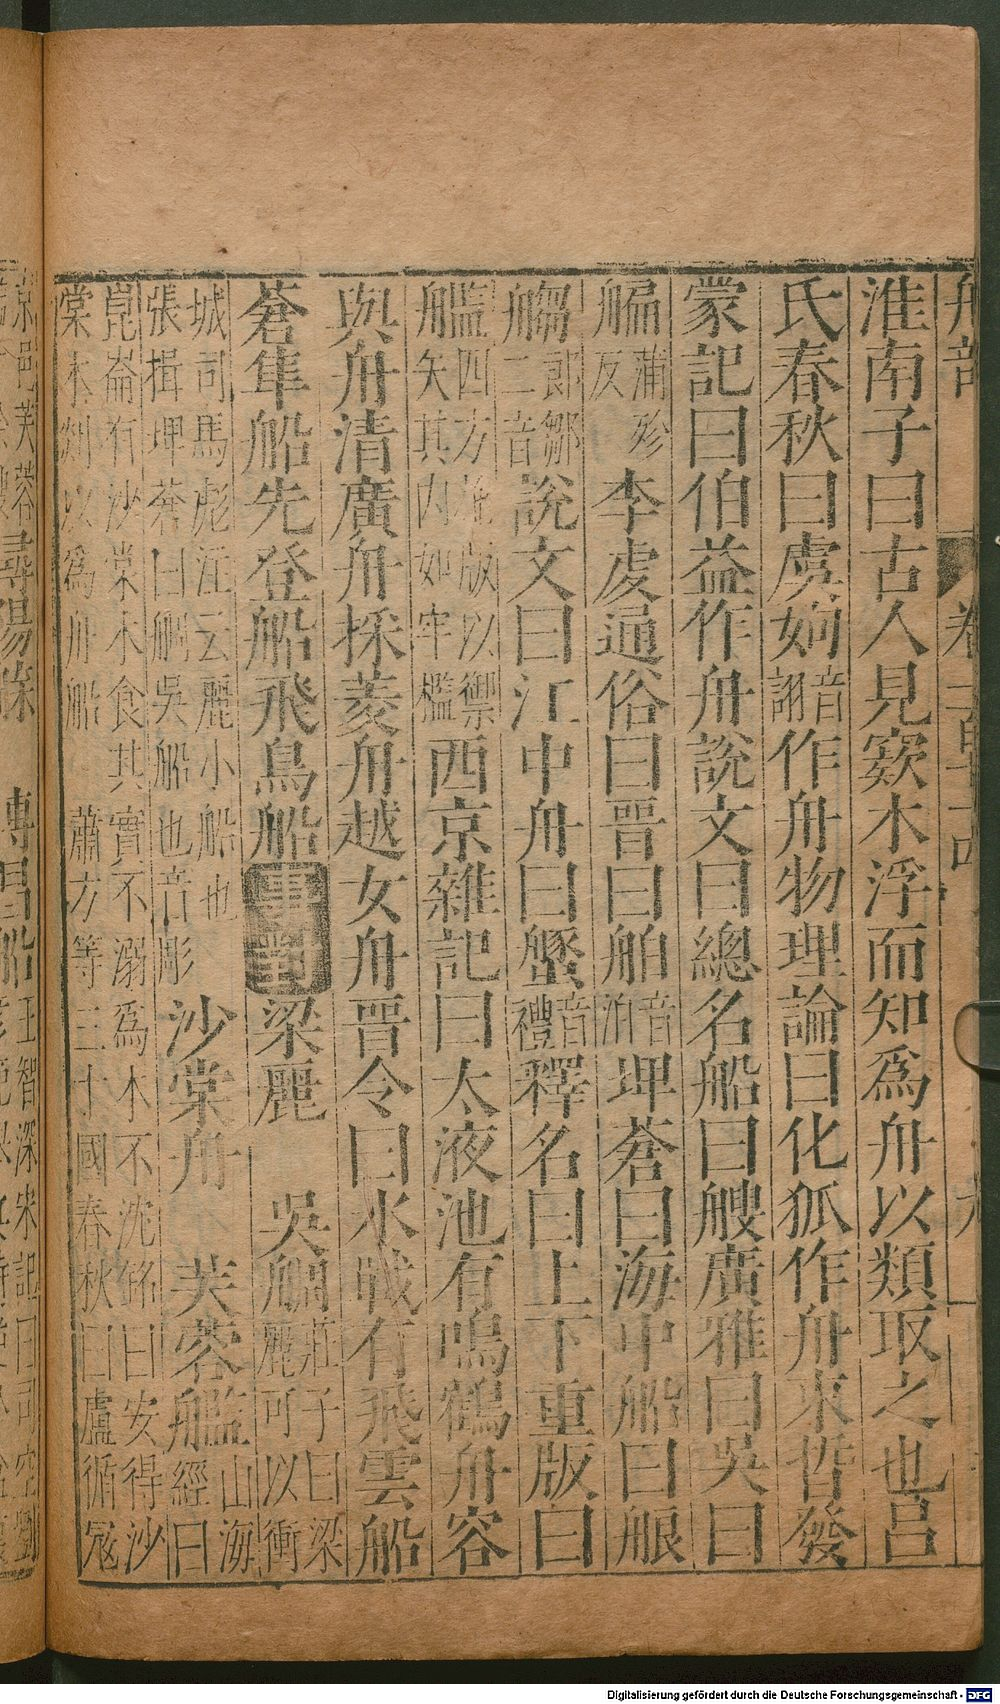 淮南子曰古人見窾木浮而知爲舟以類取之也呂
氏春秋曰虞姁音詡作舟物理論曰化狐作舟束晳發
蒙記曰伯益作舟說文曰總名船曰艘廣雅曰吳曰
艑蒲殄反李虔通俗曰晉曰舶音泊埤蒼曰海中船曰艆
䑳郎鄒二音說文曰江中舟曰䑼音禮釋名曰上下重版曰
艦四方施版以禦矢其内如牢檻西京雜記曰太液池有鳴鶴舟容
與舟清廣舟採菱舟越女舟晉令曰水戰有飛雲船
蒼隼船先登船飛鳥船事對梁麗 吳艒莊子曰梁麗可以衝
城司馬彪注云麗小船也張揖埤蒼曰艒吳船也音彫沙棠舟 芙蓉艦山海經曰
崑崙有沙棠木食其實不溺爲木不沈銘曰安得沙棠木刳以爲舟船 蕭方等三十國春秋曰盧循寇
Digitalisierung gefördert durch die Deutsche Forschungsgemeinschaft - DFG